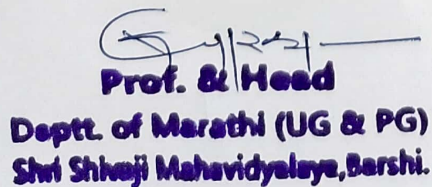 Prof. & Head
Deptt. of Marathi (UG & PG)
Shri Shivaji Mahavidyalaya, Barshi.